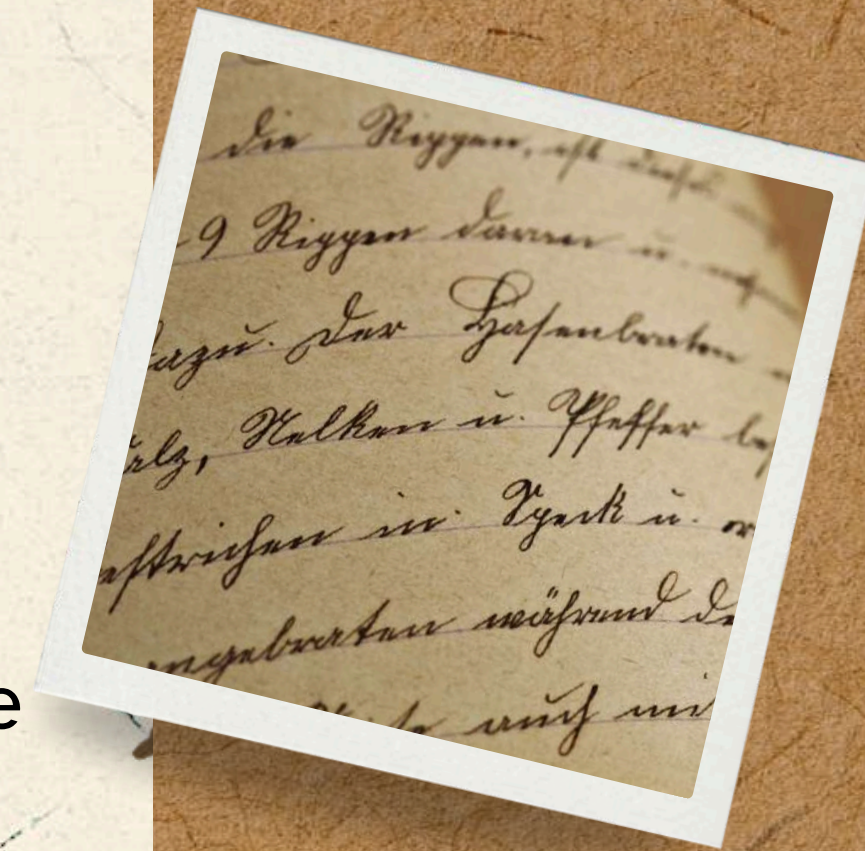 die Rippen, ist
9 Rippen daran u.
dazu. Der Hasenbraten
alz, Nelken u. Pfeffer
estrichen in. Speck u.
angebraten während de
auch mi
e